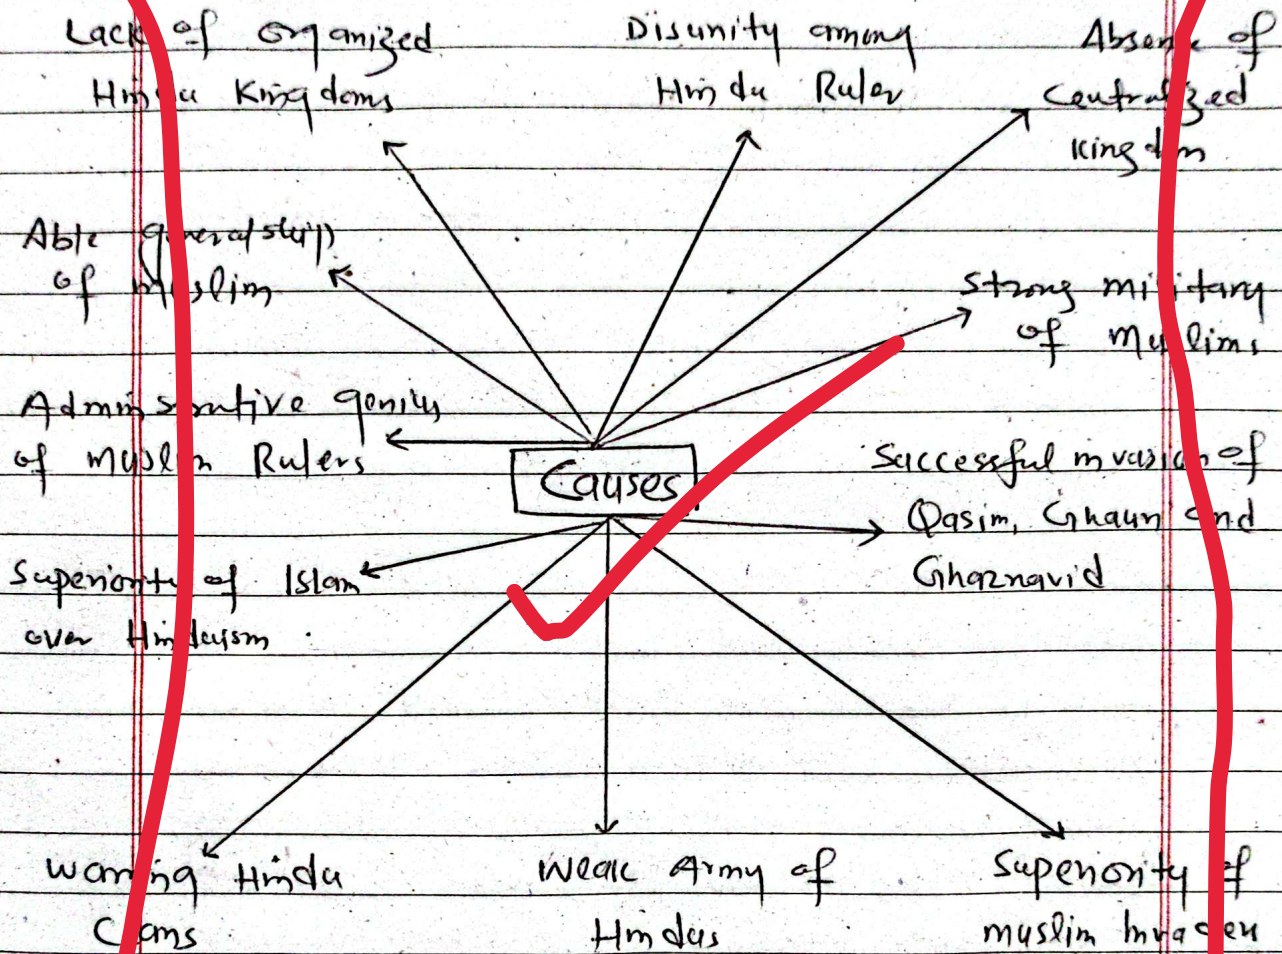 Lack of organized
Hindu Kingdoms
Disunity among
Hindu Ruler
Absence of
Centralized
Kingdom
Able generalship
of Muslim
Strong military
of Muslims
Administrative genius
of Muslim Rulers
Causes
Successful invasion of
Qasim, Ghauri and
Ghaznavid
Superiority of Islam
over Hinduism
Warring Hindu
Clans
Weak Army of
Hindus
Superiority of
muslim Invaders